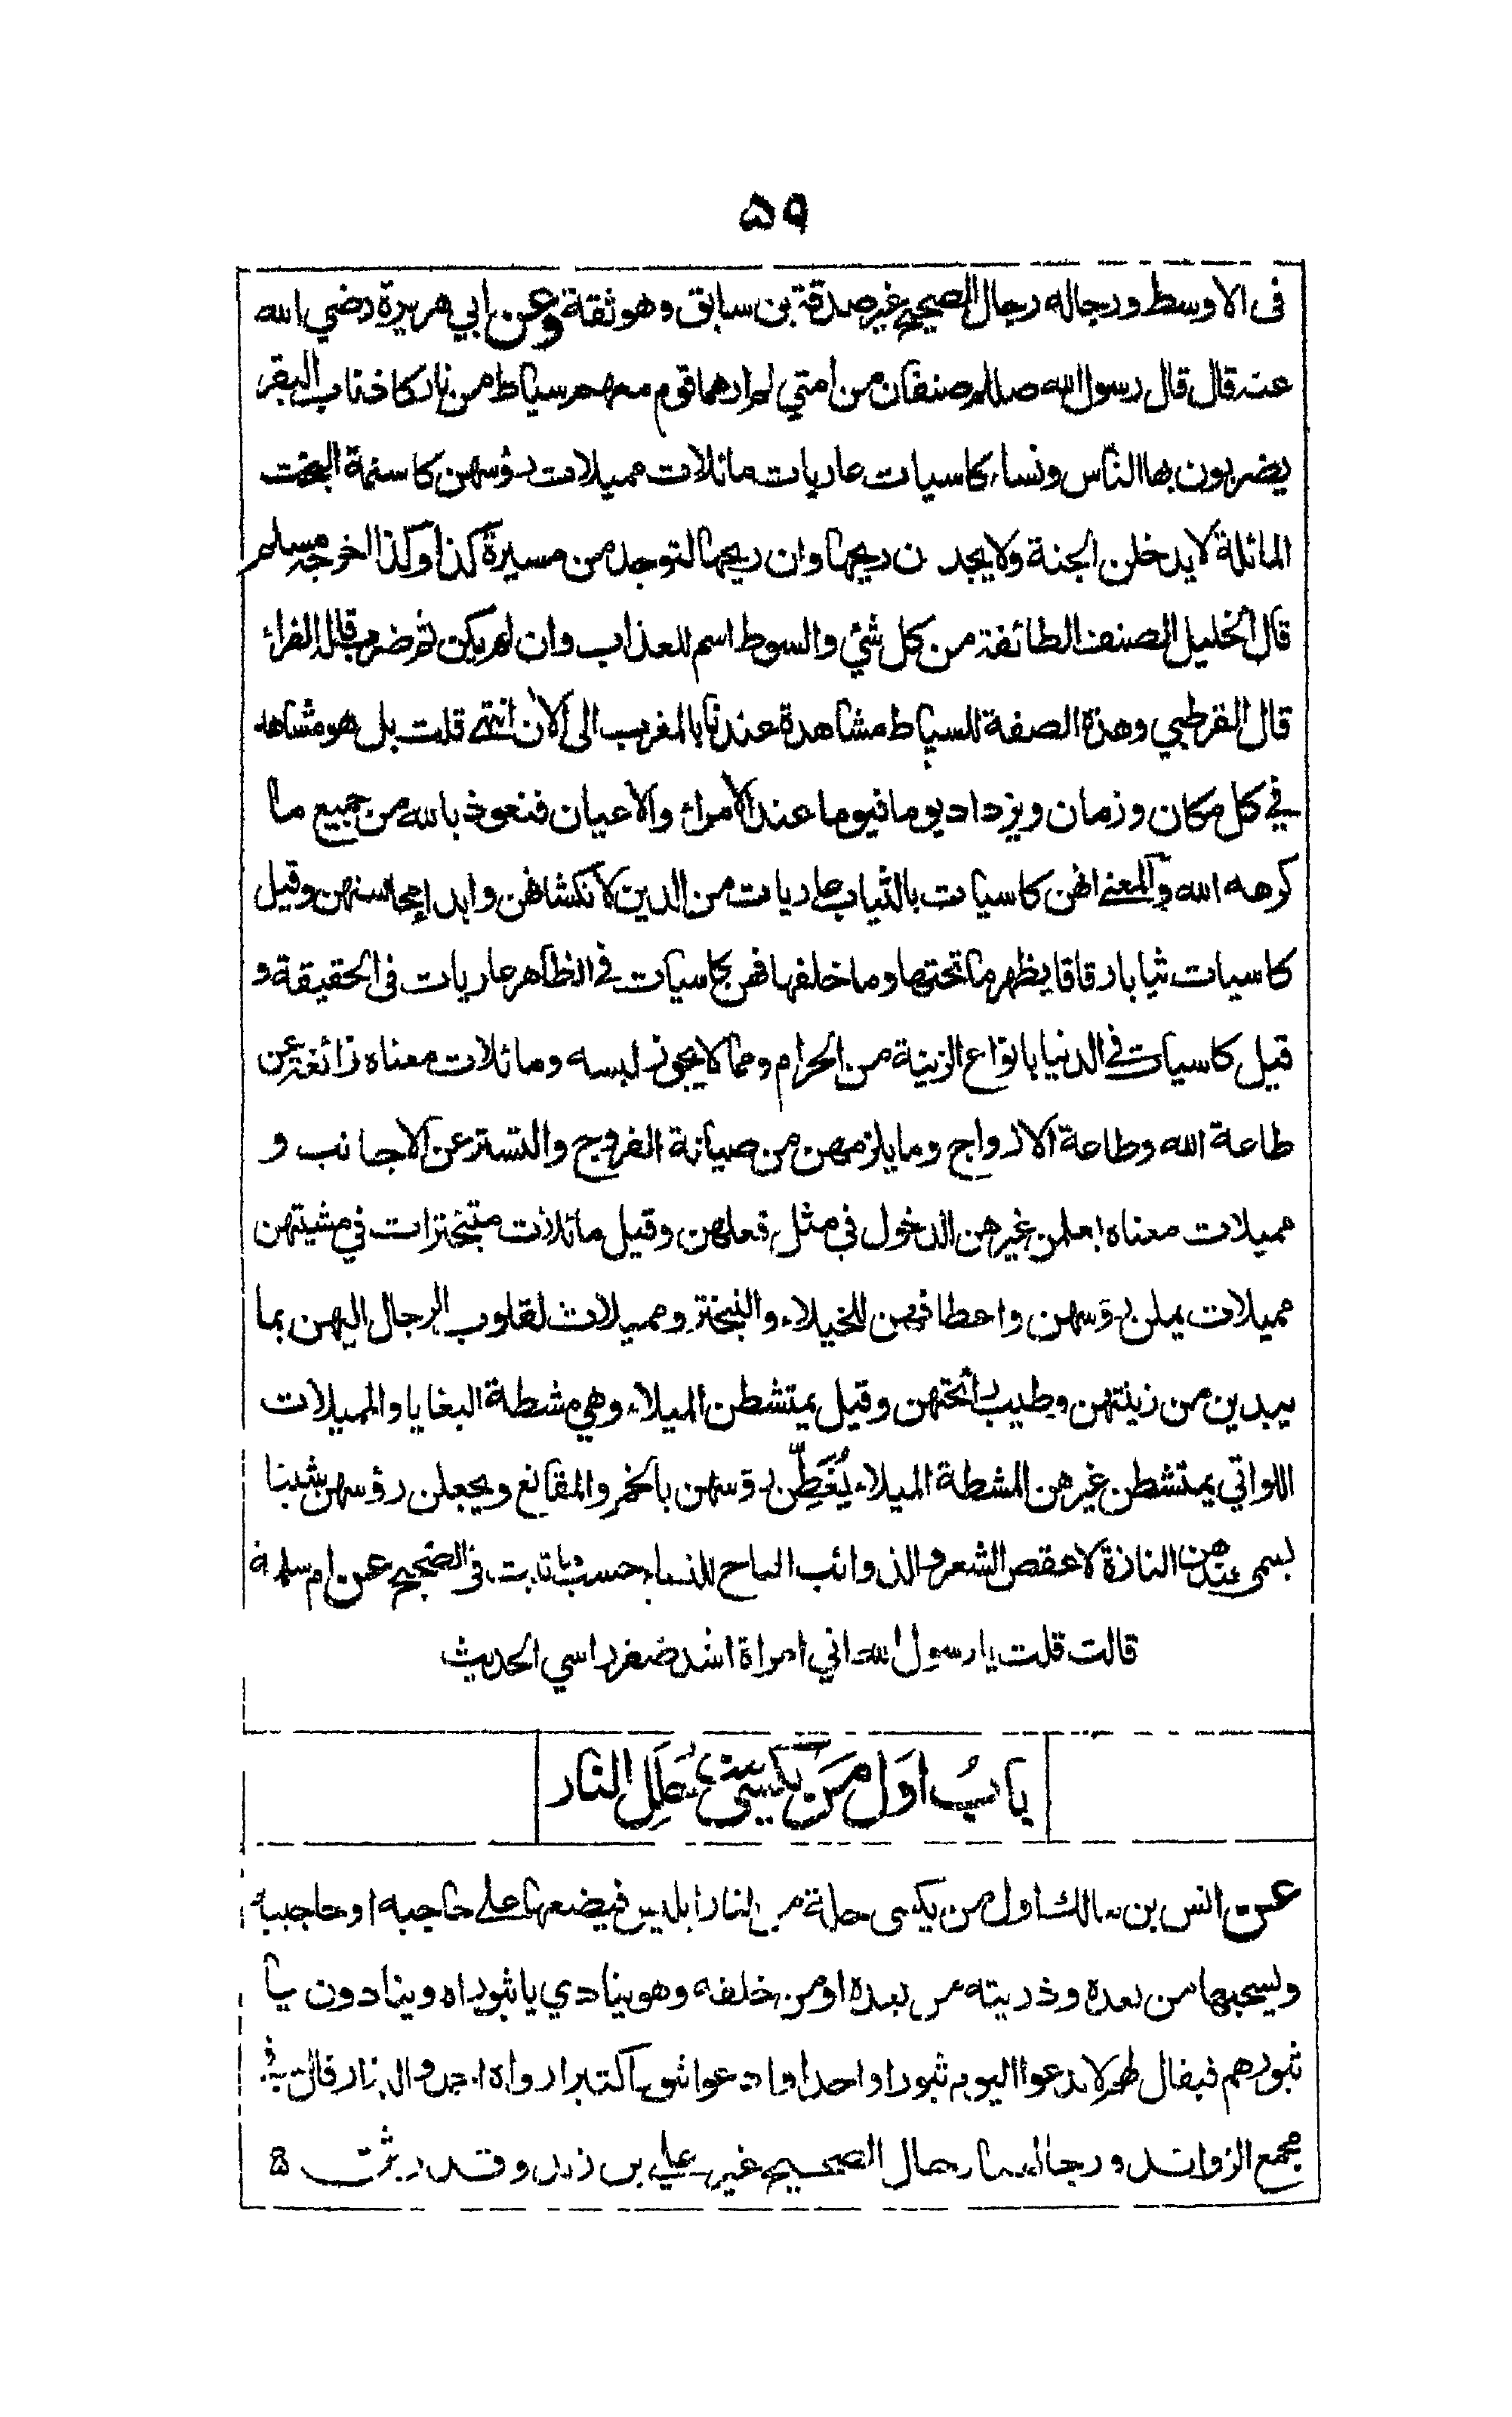 ٥٩
فى الاوسط ورجاله رجال الصحيح غير صدقة بن سابق وهو ثقة وعن ابي هريرة رضي الله
عنه قال قال رسول الله صللم صنفان من امتي لم ارهما قوم معهم سياط من نار كاذناب البقر
يضربون بها الناس ونساء كاسيات عاريات مائلات مميلات رؤسهن كاسنمة البخت
المائلة لا يدخلن الجنة ولا يجدن ريحها وان ريحها لتوجد من مسيرة كذا وكذا اخرجه مسلم
قال الخليل الصنف الطائفة من كل شئ والسوط اسم للعذاب وان لم يكن ثم ضرب قاله الفراء
قال القرطبي وهذه الصفة للسياط مشاهدة عندنا بالمغرب الى الآن انتهى قلت بل هو مشاهد
في كل مكان وزمان ويزداد يوما فيوما عند الامراء والاعيان فنعوذ بالله من جميع ما
كرهه الله والمعنے انهن كاسيات بالثياب عاريات من الدين لانكشافهن وابداء محاسنهن وقيل
كاسيات ثيابا رقاقا يظهر ما تحتها وما خلفها فهن كاسيات في الظاهر عاريات فى الحقيقة و
قيل كاسيات في الدنيا بانواع الزينة من الحرام ومما لا يجوز لبسه ومائلات معناه زائغة عن
طاعة الله وطاعة الازواج وما يلزمهن من صيانة الفروج والتستر عن الاجانب و
مميلات معناه يعلمن غيرهن الدخول في مثل فعلهن وقيل مائلات متبخترات في مشيتهن
مميلات يملن رؤسهن واعطافهن للخيلاء والتبختر ومميلات لقلوب الرجال اليهن بما
يبدين من زينتهن وطيب رائحتهن وقيل يمتشطن الميلاء وهي مشطة البغايا والمميلات
اللواتي يمتشطن غيرهن المشطة الميلاء يُغَطِّن رؤسهن بالخمر والمقانع ويجعلن رؤسهن شيئا
يسمى عندهن النازة لا عقص الشعر والذوائب المباح للنساء حسبما ثبت فى الصحيح عن ام سلمة
قالت قلت يا رسول الله اني امراة اشد ضفر راسي الحديث
بابُ اوَل مَن يكسى حُلَل النار
عن انس بن مالك اول من يكسى حلة من النار ابليس فيضعها على حاجبه او حاجبيه
ويسحبها من بعده وذريته من بعده او من خلفه وهو ينادي يا ثبوراه وينادون يا
ثبورهم فيقال لهم لا تدعوا اليوم ثبورا واحدا وادعوا ثبورا كثيرا رواه احمد والبزار قال في
مجمع الزوائد ورجالهما رجال الصحيح غير علي بن زيد وقد وثق